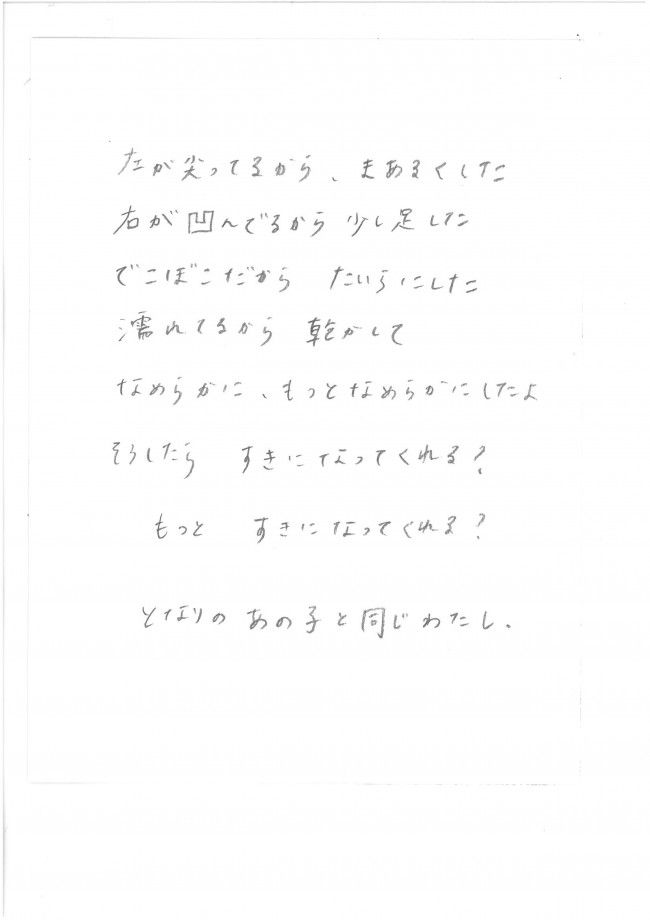 左が尖ってるから、まあるくした
右が凹んでるから 少し足した
でこぼこだから たいらにした
濡れてるから 乾かして
なめらかに、もっとなめらかにしたよ
そうしたら すきになってくれる?
もっと すきになってくれる?
となりの あの子と同じわたし.